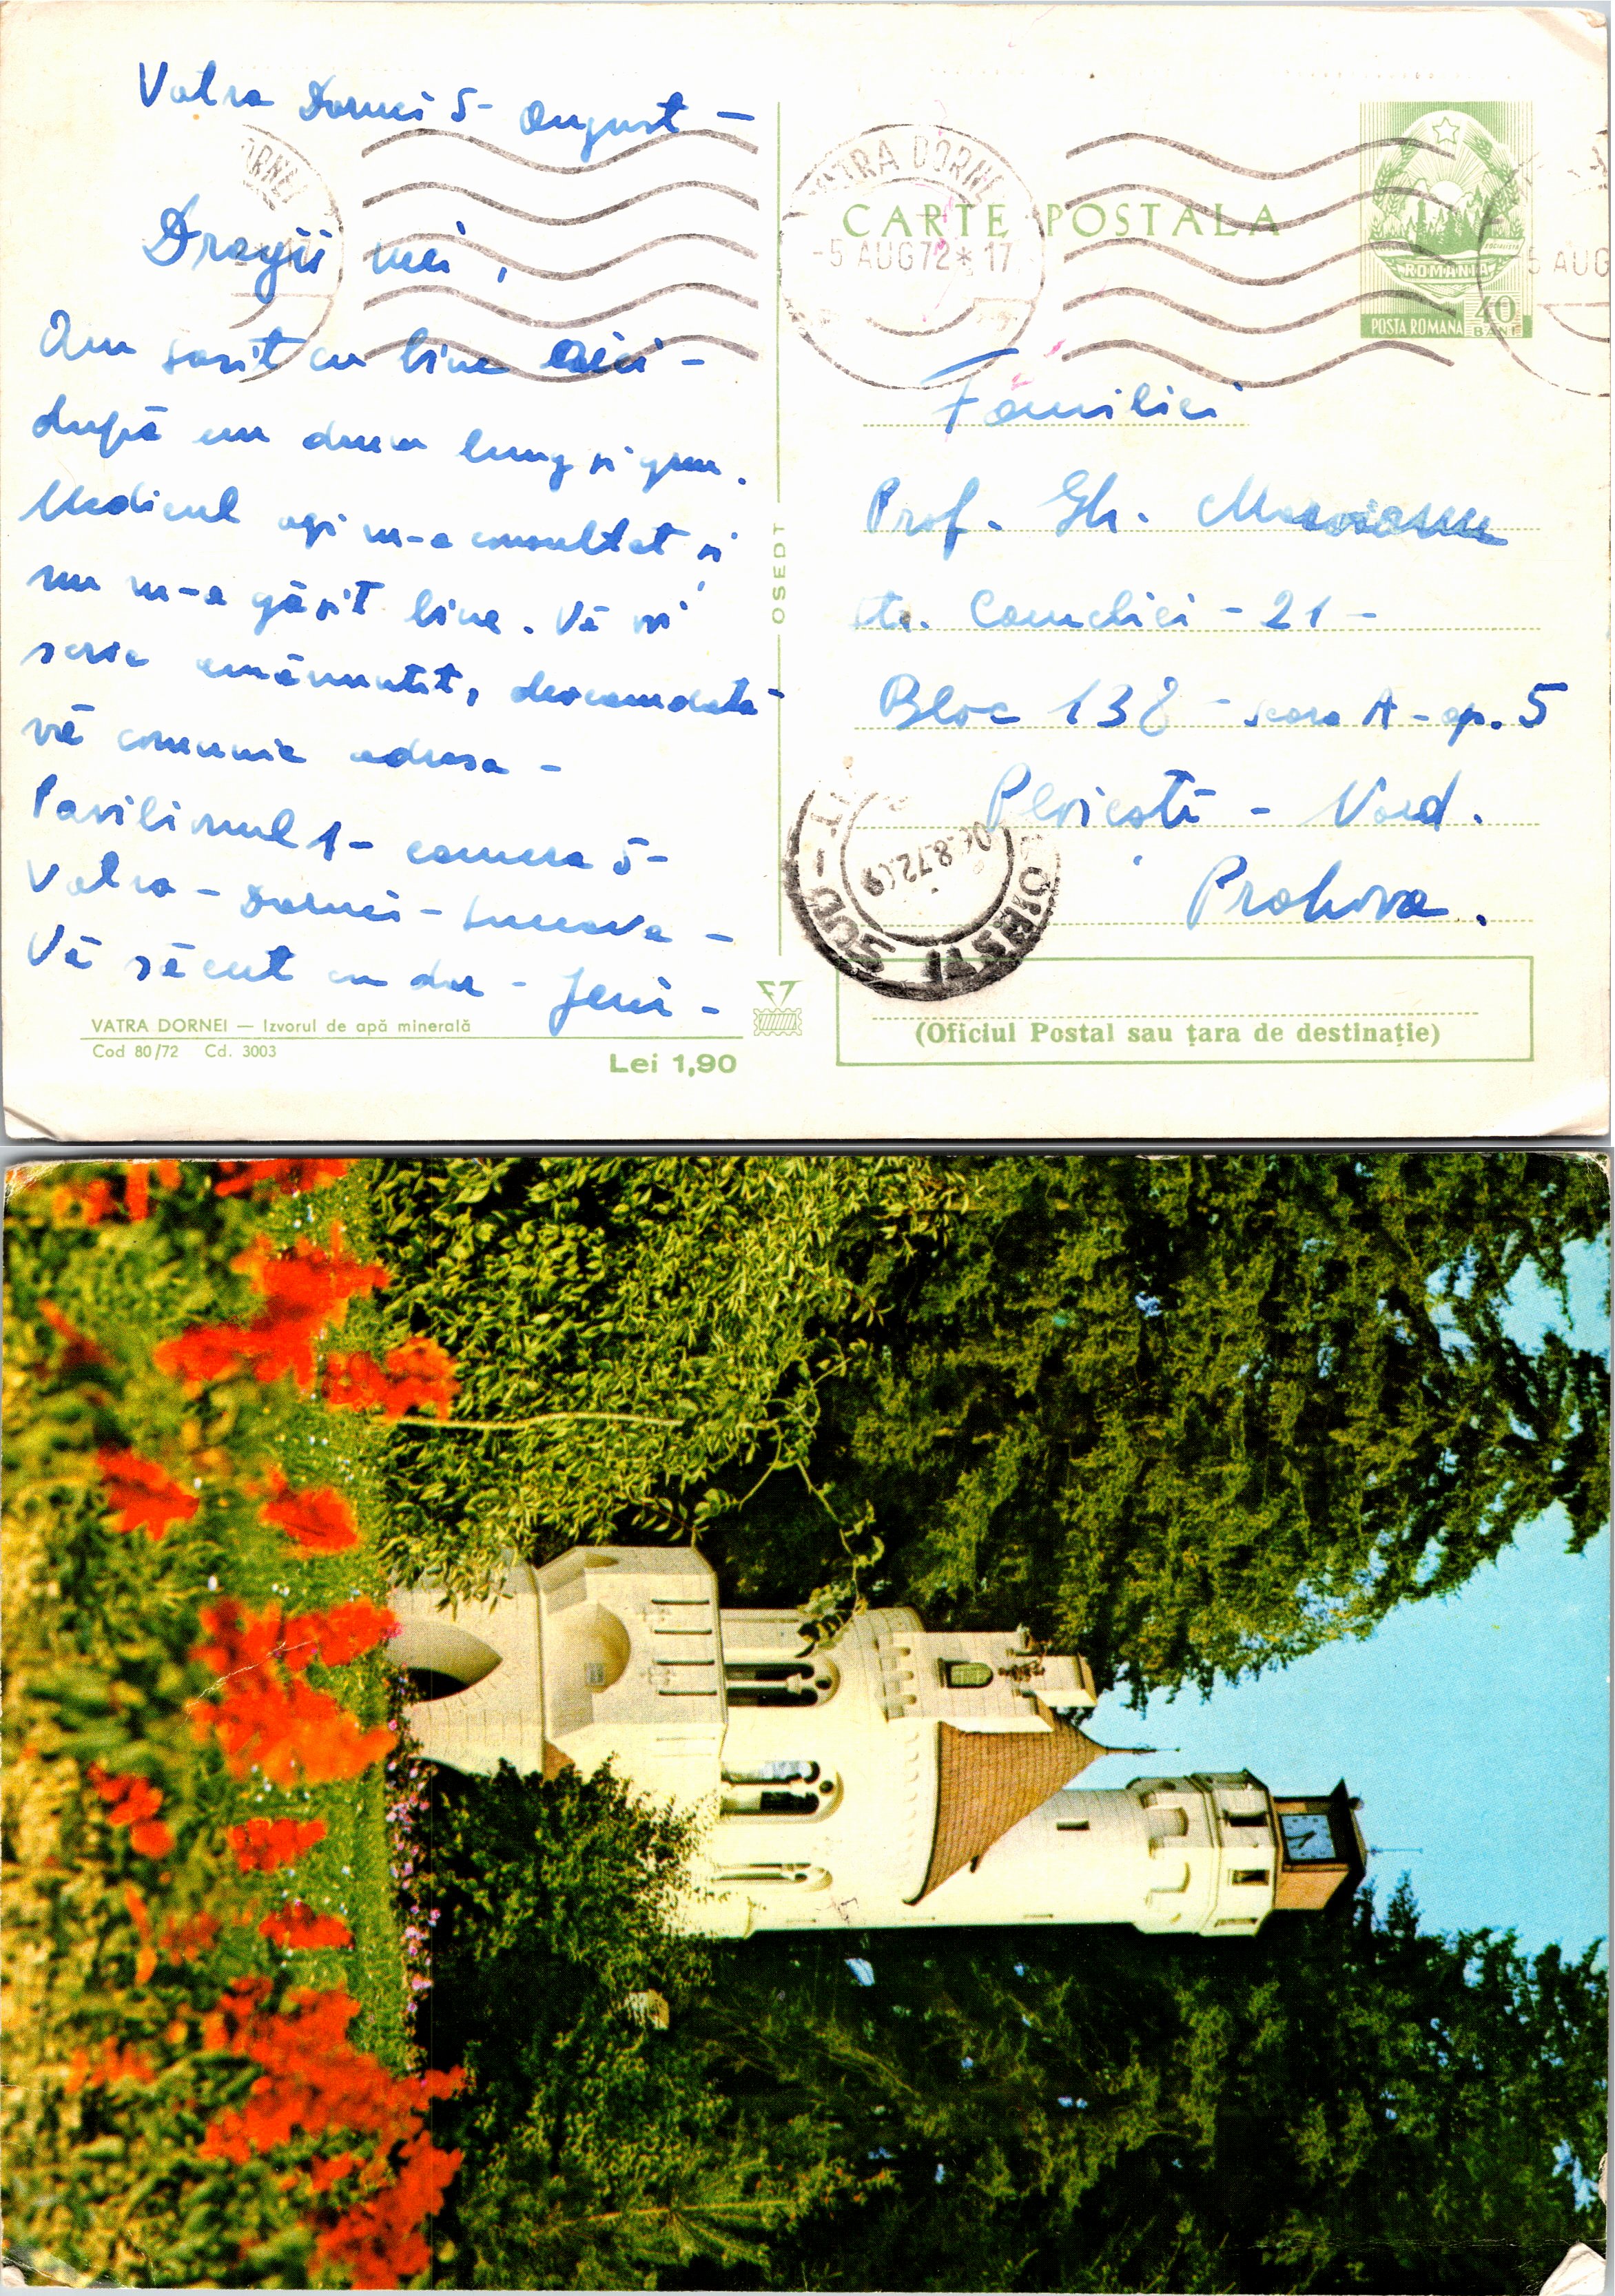 Vatra Dornei 5- August -
Dragii mei,
Am sosit cu bine aici -
după un drum lung și greu.
Medicul azi m-a consultat și
nu m-a găsit bine. Vă voi
scrie amănunțit, deocamdată
vă comunic adresa -
Pavilionul 1- camera 5-
Vatra - Dornei - Suceava -
Vă sărut cu dor - Jeni -
VATRA DORNEI — Izvorul de apă minerală
Cod 80/72 Cd. 3003
Lei 1,90
OSEDT
CARTE POSTALA
VATRA DORNEI
-5 AUG 72 * 17
ROMANIA
POSTA ROMANA
40 BANI
5 AUG
Familiei
Prof. Gh.
str. Cameliei - 21 -
Bloc 138 - scara A - ap. 5
Ploiești - Nord.
Prahova.
06.8.72.09
(Oficiul Postal sau țara de destinație)